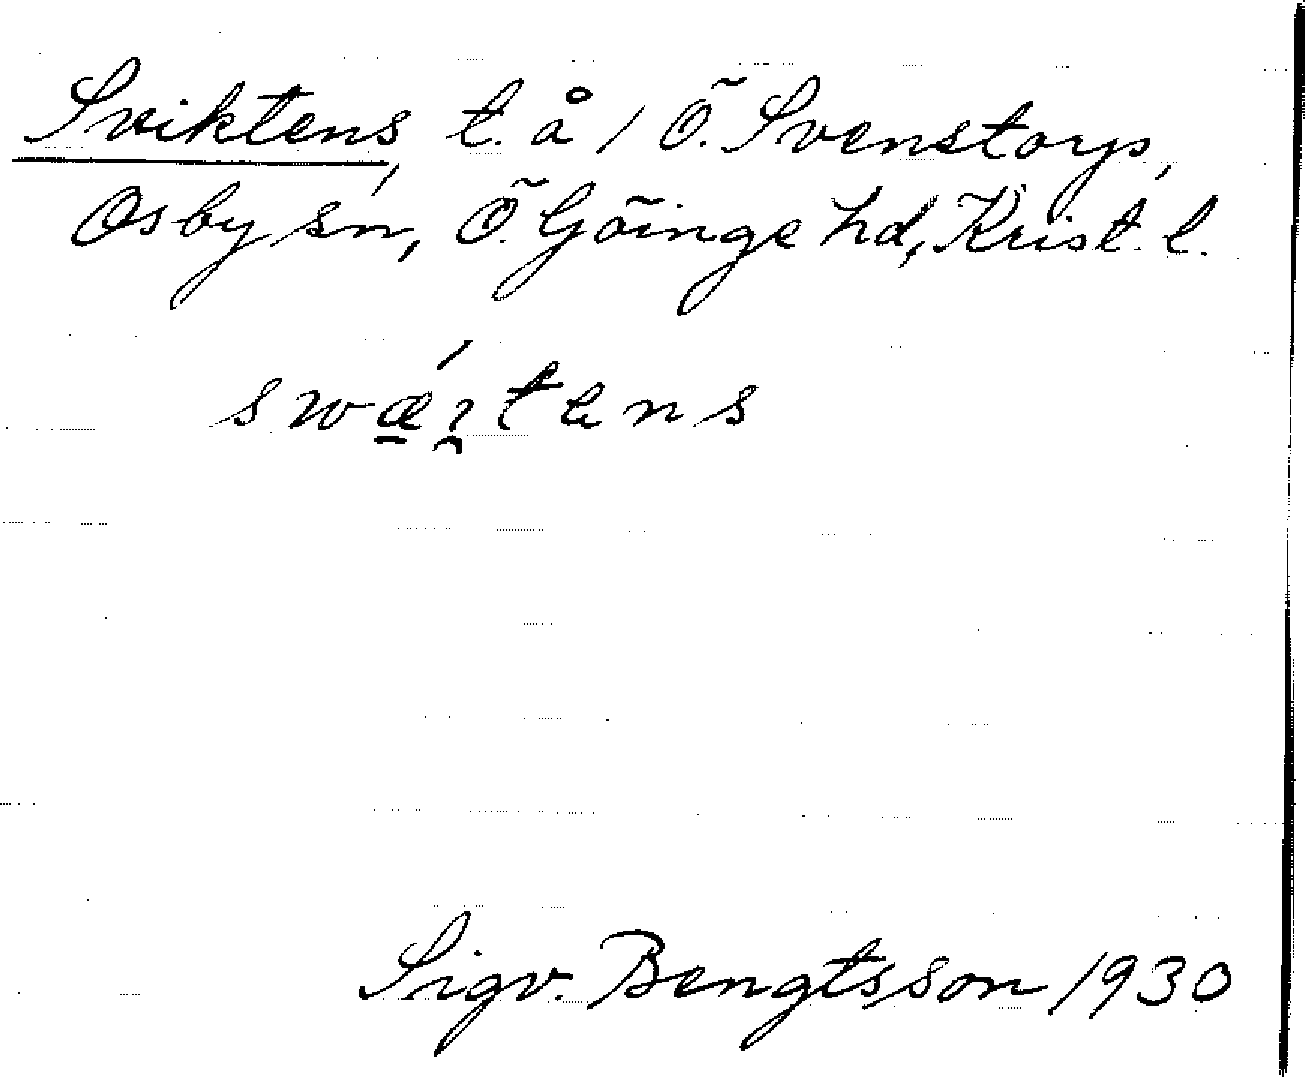 Sviktens, t. å / Ö. Svenstorp,
Osby sn, Ö. Göinge hd, Krist. l.
Sigv. Bengtsson 1930